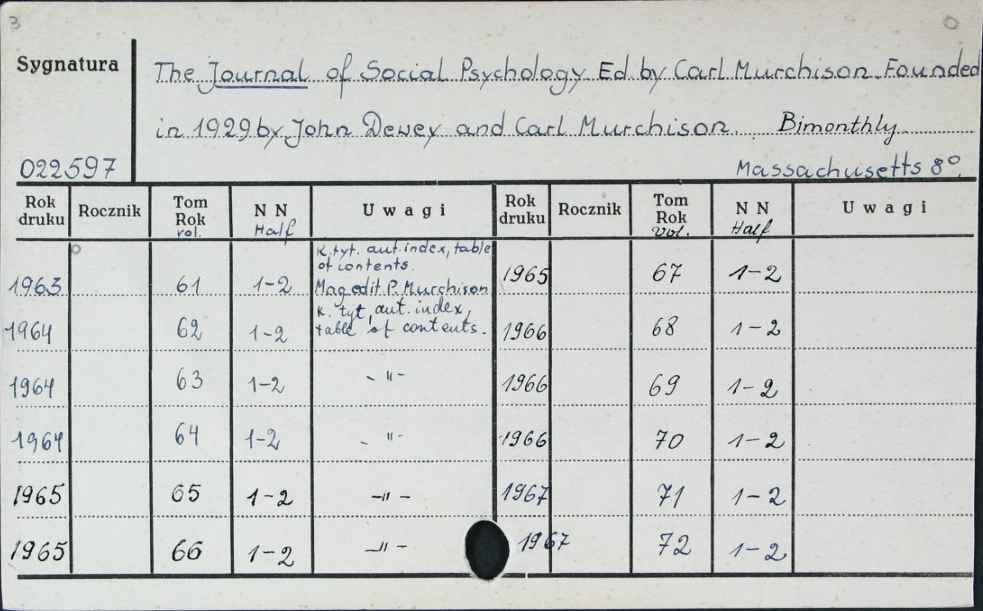 3
Sygnatura
The Journal of Social Psychology Ed. by Carl Murchison. Founded
in 1929 by John Dewey and Carl Murchison. Bimonthly
022597 Massachusetts 8°.
Rok druku Rocznik Tom Rok vol. N N Half U w a g i Rok druku Rocznik Tom Rok vol. N N Half U w a g i
K. tyt. aut. index, table
of contents.
1963 61 1-2 Mag edit P. Murchison 1965 67 1-2
K. tyt aut. index,
1964 62 1-2 table of contents. 1966 68 1-2
1964 63 1-2 - " - 1966 69 1-2
1964 64 1-2 - " - 1966 70 1-2
1965 65 1-2 - " - 1967 71 1-2
1965 66 1-2 - " - 1967 72 1-2